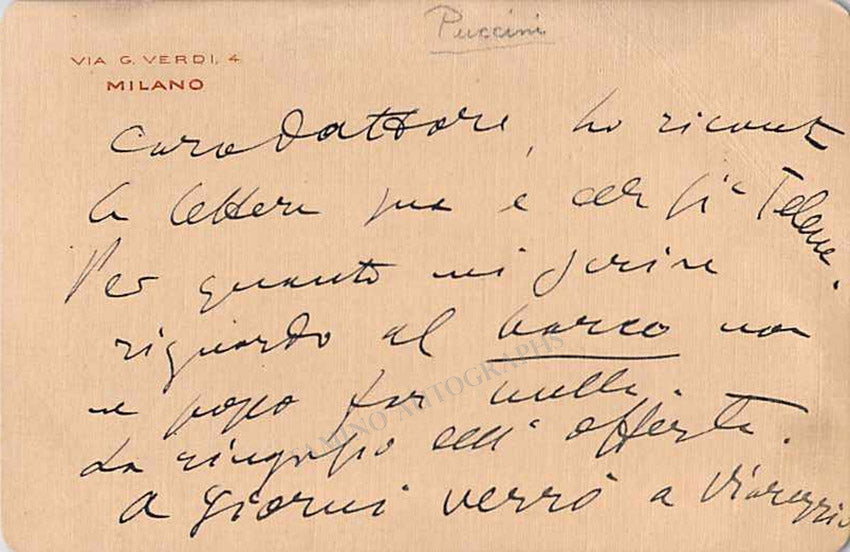 Puccini
VIA G. VERDI, 4
MILANO
Caro Dottore, ho ricevuto
la lettera sua e
Per quanto mi scrive
riguardo al barco non
ne posso far nulla.
La ringrazio dell'offerta.
A giorni verrò a Viareggio
TAMINO AUTOGRAPHS